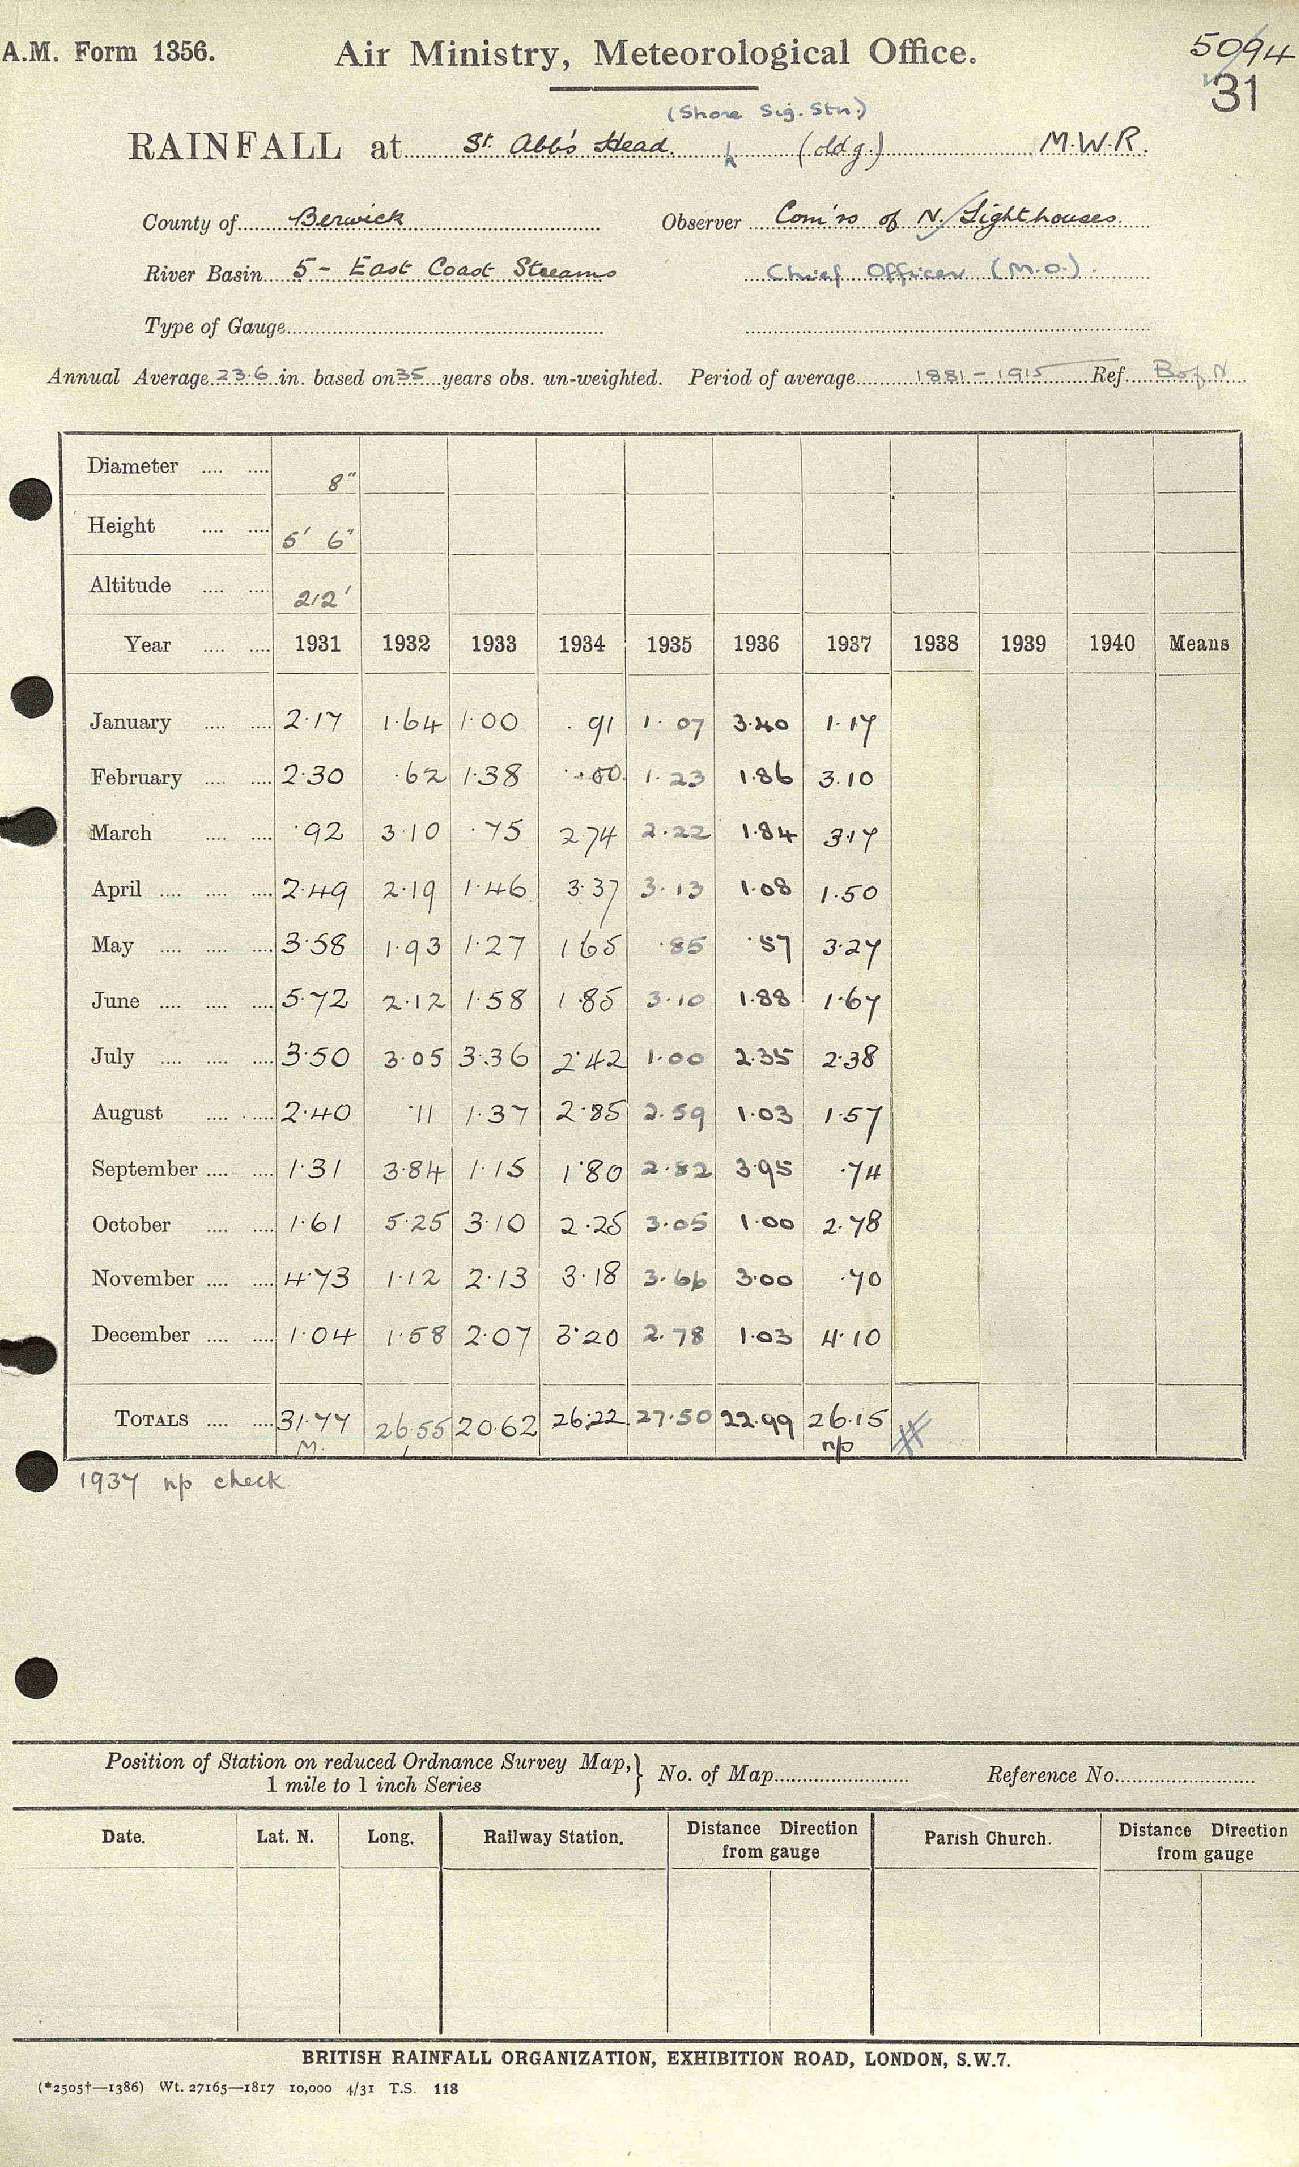 A.M. Form 1356. Air Ministry, Meteorological Office. 5094
31
(Shore Sig. Stn.)
RAINFALL at St. Abb's Head. (old g.) M.W.R.
County of Berwick Observer Com'rs of N. Lighthouses.
River Basin 5 - East Coast Streams Chief Officer (M.O.).
Type of Gauge
Annual Average 23.6 in. based on 35 years obs. un-weighted. Period of average 1881-1915 Ref. B of N
Diameter .... .... 8"
Height .... .... 5' 6"
Altitude .... .... 212'
Year .... .... 1931 1932 1933 1934 1935 1936 1937 1938 1939 1940 Means
January .... .... 2.17 1.64 1.00 .91 1.07 3.40 1.17
February .... .... 2.30 .62 1.38 .00 1.23 1.86 3.10
March .... .... .92 3.10 .75 2.74 2.22 1.84 3.17
April .... .... .... 2.49 2.19 1.46 3.37 3.13 1.08 1.50
May .... .... .... 3.58 1.93 1.27 1.65 .85 .57 3.27
June .... .... .... 5.72 2.12 1.58 1.85 3.10 1.88 1.67
July .... .... .... 3.50 3.05 3.36 2.42 1.00 2.35 2.38
August .... .... 2.40 .11 1.37 2.85 2.59 1.03 1.57
September .... .... 1.31 3.84 1.15 1.80 2.82 3.95 .74
October .... .... 1.61 5.25 3.10 2.25 3.05 1.00 2.78
November .... .... 4.73 1.12 2.13 3.18 3.66 3.00 .70
December .... .... 1.04 1.58 2.07 3.20 2.78 1.03 4.10
TOTALS .... .... 31.77 26.55 20.62 26.22 27.50 22.99 26.15
M. np
1937 np check
Position of Station on reduced Ordnance Survey Map, } No. of Map Reference No.
1 mile to 1 inch Series
Date. Lat. N. Long. Railway Station. Distance Direction from gauge Parish Church. Distance Direction from gauge
BRITISH RAINFALL ORGANIZATION, EXHIBITION ROAD, LONDON, S.W.7.
(*2505†—1386) Wt. 27165—1817 10,000 4/31 T.S. 118